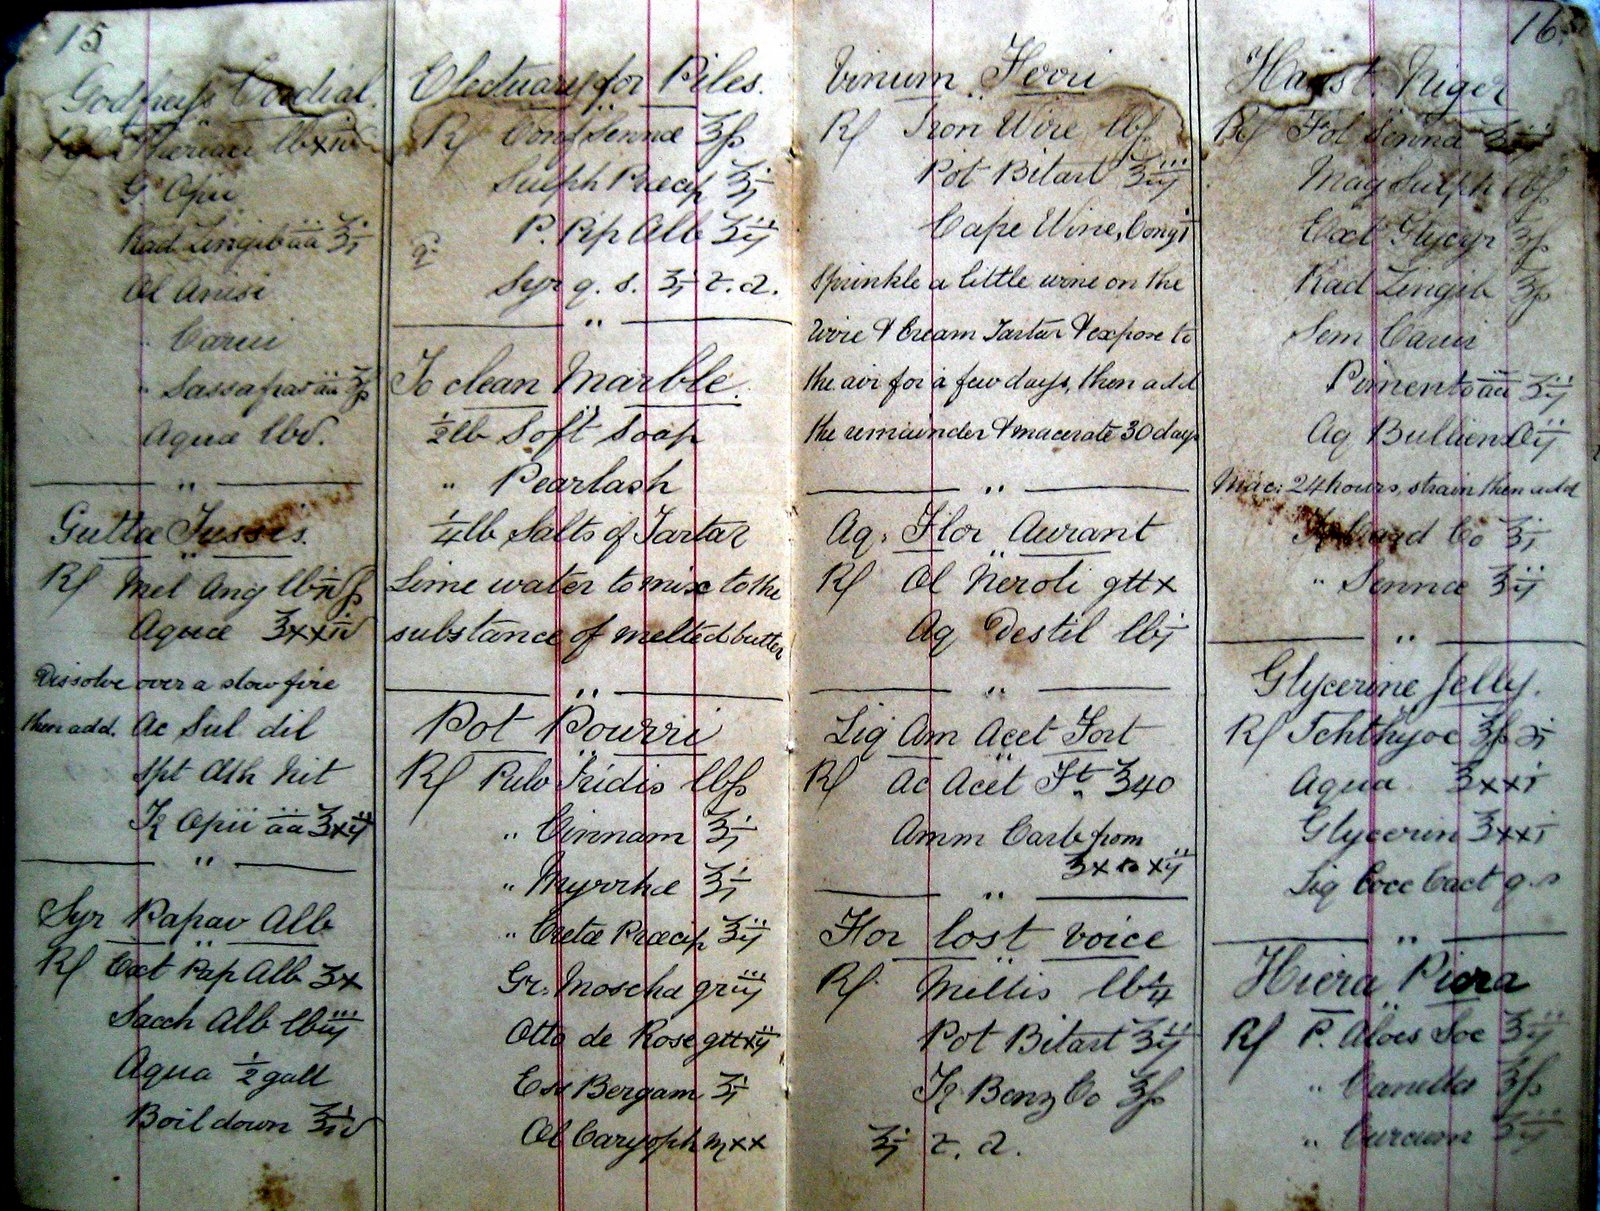 15
Godfrey's Cordial.
Rƒ Theriaci lbxiv
G Opii
Rad Zingib āā ℥i
Ol Anisi
" Carui
" Sassafras āā ℥ſs
Aqua lbv.
Guttæ Tussis.
Rƒ Mel Ang
Aquæ ℥xxiv
Dissolve over a slow fire
then add. Ac Sul dil
Spt Æth Nit
Tr Opii āā ℥xij
Syr Papav Alb
Rƒ Ext Pap Alb ℥x
Sacch Alb lbiij
Aqua ½ gall
Boil down
Electuary for Piles.
Rƒ Conf Sennæ ℥ſs
Sulph Præcip ℥i
P. Pip Alb ʒij
Syr q. s. ʒi t. d.
To clean Marble.
½lb Soft Soap
" Pearlash
¼lb Salts of Tartar
Lime water to mix to the
substance of melted butter
Pot Pourri
Rƒ Pulv Iridis lbſs
" Cinnam ℥i
" Myrrhæ ℥i
" Cretæ Præcip ℥ij
Gr. Moscha griij
Otto de Rose gttxij
Ess Bergam ʒi
Ol Caryoph mxx
16
Vinum Ferri
Rƒ Iron Wire lbſs
Pot Bitart ℥iij
Cape Wine, Cong i
Sprinkle a little wine on the
Wire & Cream Tartar & expose to
the air for a few days, then add
the remainder & macerate 30 days
Aq. Flor Aurant
Rƒ Ol Neroli gttx
Aq Destil lbi
Liq Am Acet Fort
Rƒ Ac Acet Ft ℥40
Amm Carb
For lost voice
Rƒ Mellis lb¼
Pot Bitart ʒij
Tr Benz Co ℥ſs
ʒi t. d.
Haust. Niger
Rƒ Fol Senna
Mag Sulph lbſs
Ext Glycyr ℥ſs
Rad Zingib ℥ſs
Sem Carui
Pimento āā ʒij
Aq Bulliens Oij
Mac: 24 hours, strain then add
Tr Card Co ℥i
" Sennæ ℥ij
Glycerine Jelly.
Rƒ Ichthyoc
Aqua ℥xxi
Glycerin ℥xxi
Liq Cocc Cact q.s
Hiera Picra
Rƒ P. Aloes Soc ℥ij
" Canella ℥ſs
" Curcum ʒij